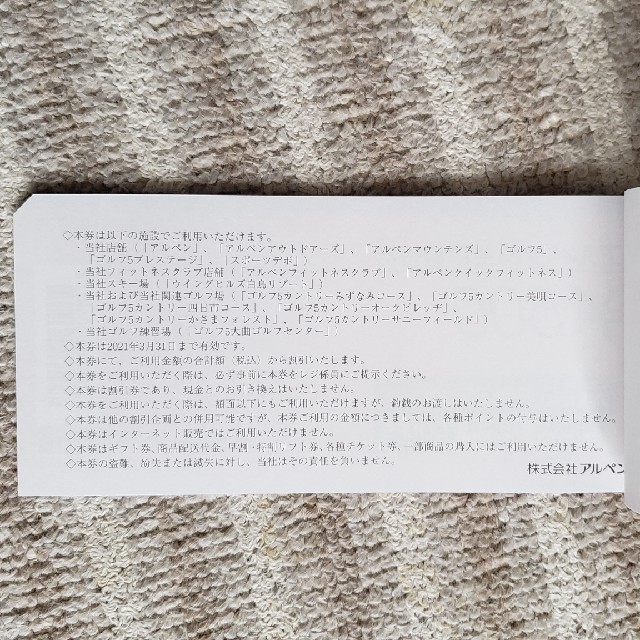 ◇本券は以下の施設でご利用いただけます。
・当社店舗（「アルペン」、「アルペンアウトドアーズ」、「アルペンマウンテンズ」、「ゴルフ5」、
「ゴルフ5プレステージ」、「スポーツデポ」）
・当社フィットネスクラブ店舗（「アルペンフィットネスクラブ」、「アルペンクイックフィットネス」）
・当社スキー場（「ウイングヒルズ白鳥リゾート」）
・当社および当社関連ゴルフ場（「ゴルフ5カントリーみずなみコース」、「ゴルフ5カントリー美唄コース」、
「ゴルフ5カントリー四日市コース」、「ゴルフ5カントリーオークビレッヂ」、
「ゴルフ5カントリーかさまフォレスト」、「ゴルフ5カントリーサニーフィールド」）
・当社ゴルフ練習場（「ゴルフ5大曲ゴルフセンター」）
◇本券は2021年3月31日まで有効です。
◇本券にて、ご利用金額の合計額（税込）から割引いたします。
◇本券をご利用いただく際は、必ず事前に本券をレジ係員にご提示ください。
◇本券は割引券であり、現金とのお引き換えはいたしません。
◇本券をご利用いただく際は、額面以下にもご利用いただけますが、釣銭のお渡しはいたしません。
◇本券は他の割引企画との併用可能ですが、本券ご利用の金額につきましては、各種ポイントの付与はいたしません。
◇本券はインターネット販売ではご利用いただけません。
◇本券はギフト券、商品配送代金、早割・特割リフト券、各種チケット等、一部商品の購入にはご利用いただけません。
◇本券の盗難、紛失または滅失に対し、当社はその責任を負いません。
株式会社アルペン